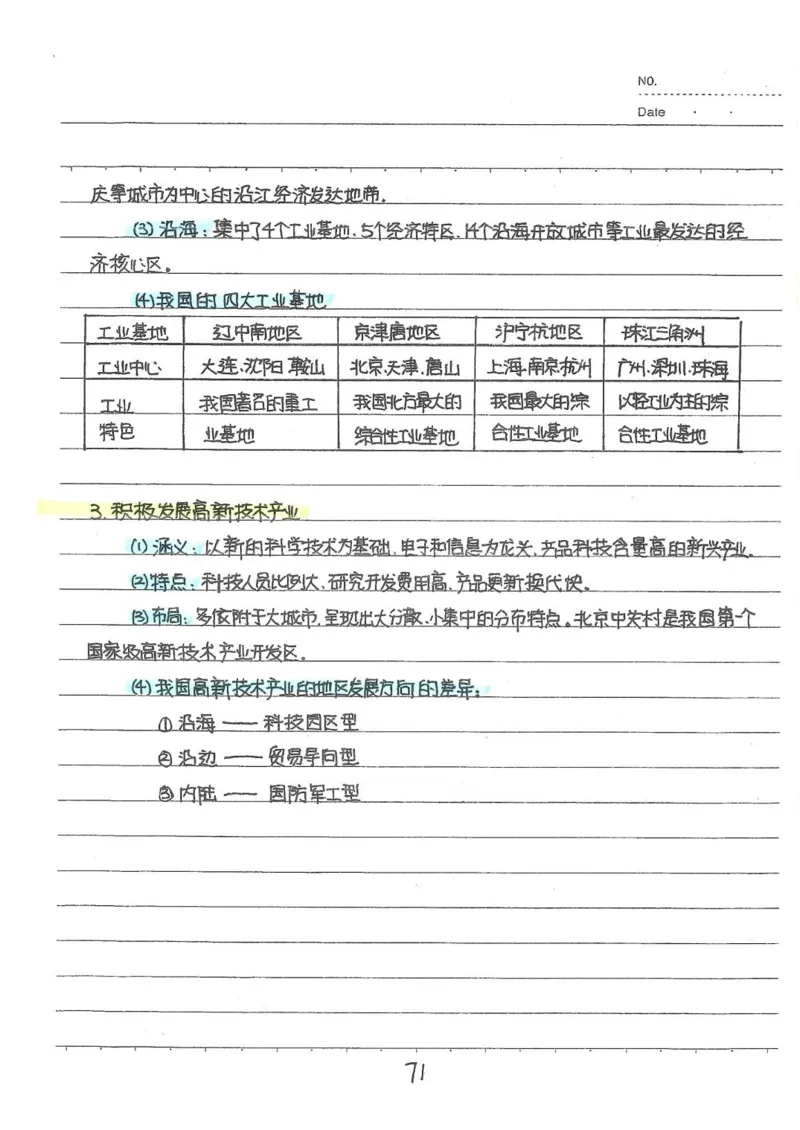 NO.
Date
庆等城市为中心的沿江经济发达地带.
(3) 沿海：集中了4个工业基地、5个经济特区、14个沿海开放城市等工业最发达的经
济核心区。
(4)我国的四大工业基地
工业基地 辽中南地区 京津唐地区 沪宁杭地区 珠江三角洲
工业中心 大连、沈阳、鞍山 北京、天津、唐山 上海、南京、杭州 广州、深圳、珠海
工业 我国著名的重工 我国北方最大的 我国最大的综 以轻工业为主的综
特色 业基地 综合性工业基地 合性工业基地 合性工业基地
3. 积极发展高新技术产业
(1) 涵义：以新的科学技术为基础，电子和信息为龙头，产品科技含量高的新兴产业.
(2)特点：科技人员比例大、研究开发费用高、产品更新换代快。
(3)布局：多依附于大城市，呈现出大分散、小集中的分布特点。北京中关村是我国第一个
国家级高新技术产业开发区.
(4)我国高新技术产业的地区发展方向的差异：
① 沿海 —— 科技园区型
② 沿边 —— 贸易导向型
③ 内陆 —— 国防军工型
71